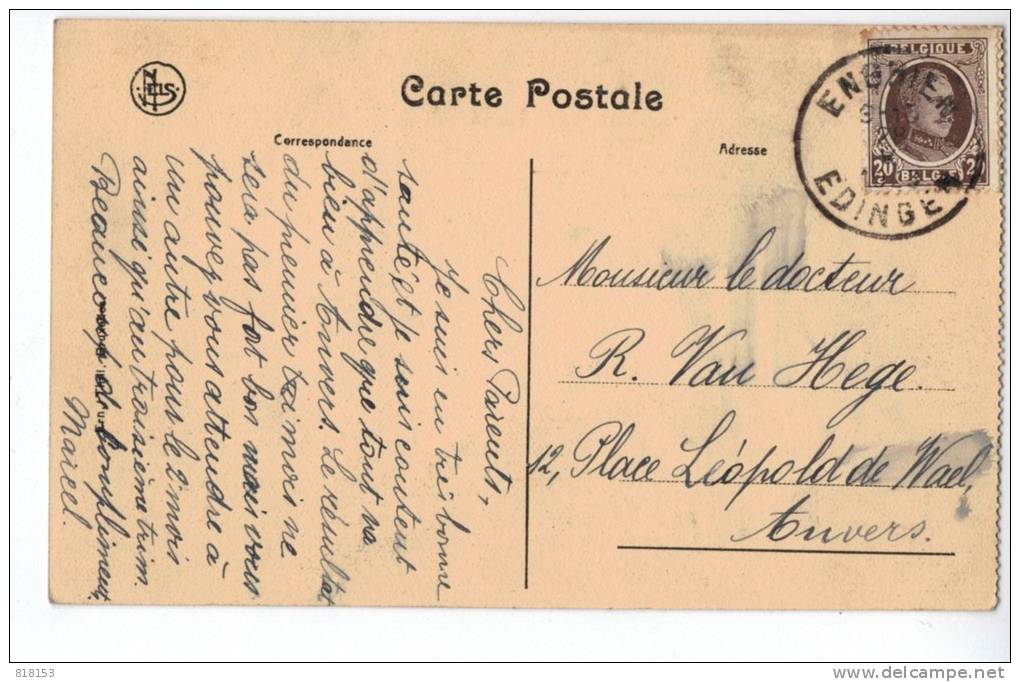 Carte Postale
Correspondance
Adresse
NELS
BELGIQUE
20 c
20 c
BELGIE
ENGHIEN
EDINGEN
Chers Parents,
Je suis en très bonne
santé et je suis content
d'apprendre que tout va
bien à Anvers. Le résultat
du premier mois ne
sera pas fort bon mais vous
pouvez vous attendre à
un autre pour le 2 mois
ainsi qu'au troisième trim.
Beaucoup de compliments,
Marcel.
Monsieur le docteur
R. Van Hege.
12, Place Léopold de Wael,
Anvers.
818153
delcampe.net